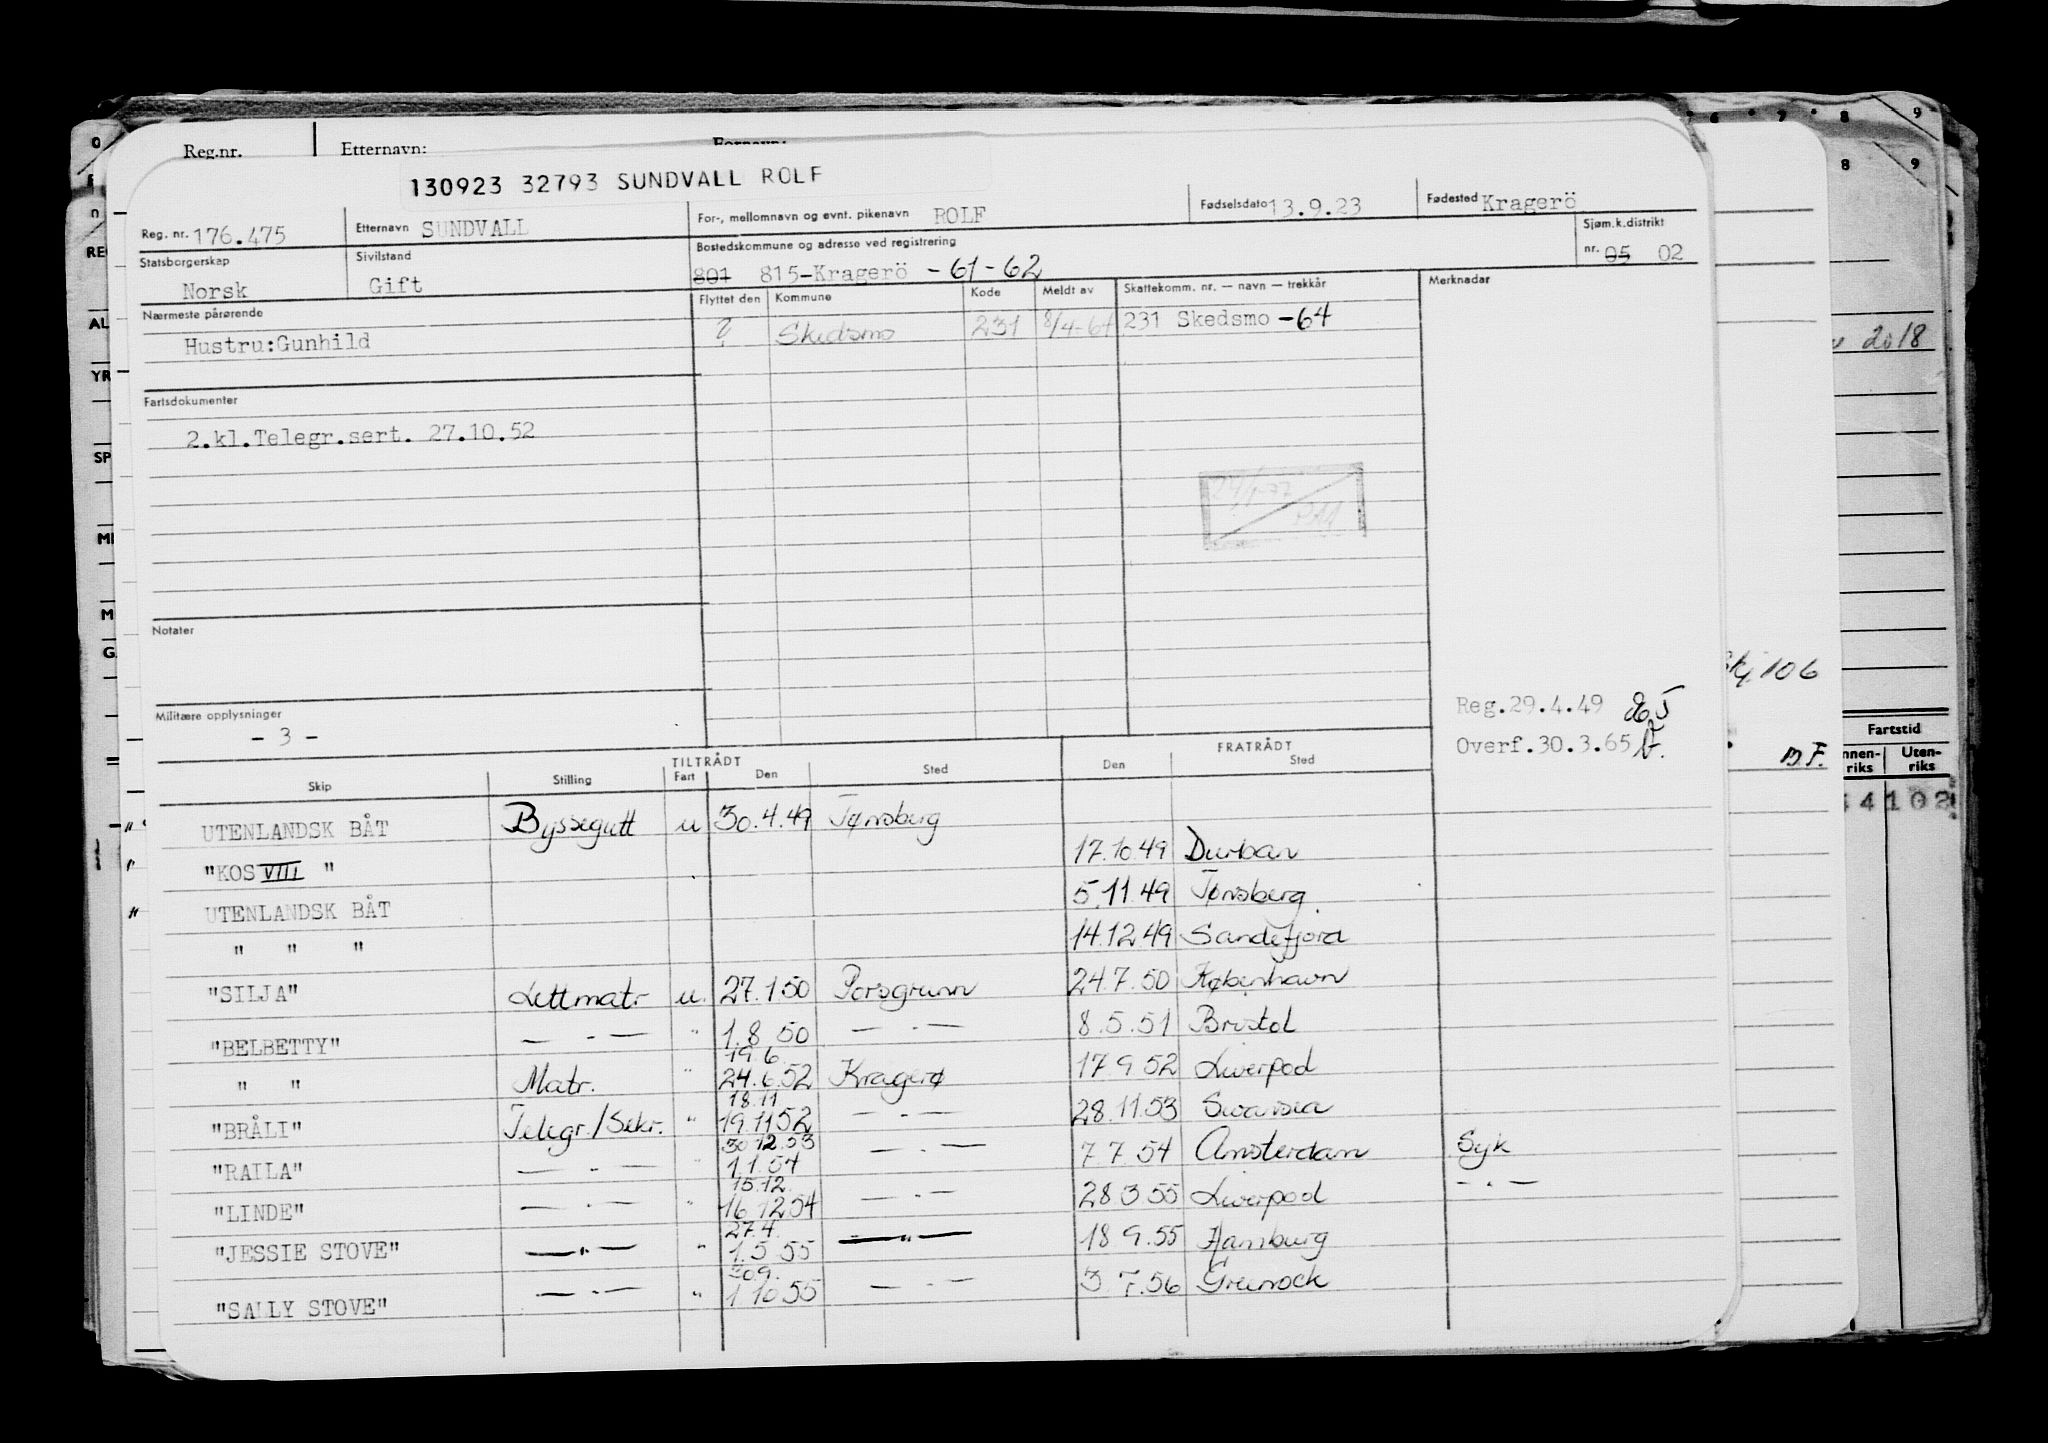 Reg.nr. Etternavn: Fornavn:
130923 32793 SUNDVALL ROLF
Reg. nr. 176.475 Etternavn SUNDVALL For-, mellomnavn og evnt. pikenavn ROLF Fødselsdato 13.9.23 Fødested Kragerö
Statsborgerskap Norsk Sivilstand Gift Bostedskommune og adresse ved registrering 801 815-Kragerö -61-62 Sjøm.k.distrikt nr. 05 02
Nærmeste pårørende Flyttet den Kommune Kode Meldt av Skattekomm. nr. — navn — trekkår Merknader
Hustru:Gunhild ? Skedsmo 231 8/4-64 231 Skedsmo -64
Fartsdokumenter
2.kl.Telegr.sert. 27.10.52
Notater
Militære opplysninger
- 3 -
Reg.29.4.49
Overf.30.3.65
TILTRÅDT FRATRÅDT
Skip Stilling Fart Den Sted Den Sted
UTENLANDSK BÅT Byssegutt u 30.4.49 Tønsberg
"KOS VIII " 17.10.49 Durban
UTENLANDSK BÅT 5.11.49 Tønsberg
" " " 14.12.49 Sandefjord
"SILJA" Lettmatr u. 27.1.50 Porsgrunn 24.7.50 København
"BELBETTY" — . — " 1.8 50 — . — 8.5.51 Bristol
" " Matr. " 19 6. 24.6.52 Kragerø 17.9.52 Liverpool
"BRÅLI" Telegr./Sekr. " 18.11 19.11 52 — . — 28.11.53 Swansea
"RAILA" — . — " 30 12.53 1.1.54 — . — 7.7.54 Amsterdam Syk
"LINDE" — . — " 15.12. 16.12 54 — . — 28 3 55 Liverpool — . —
"JESSIE STOVE" — " — " 27.4. 1.5 55 — " — 18 9.55 Hamburg
"SALLY STOVE" — . — " 30.9. 1 10 55 — . — 3.7.56 Greenock
2018
106
Fartstid
Uten-
riks
M.F.
4102